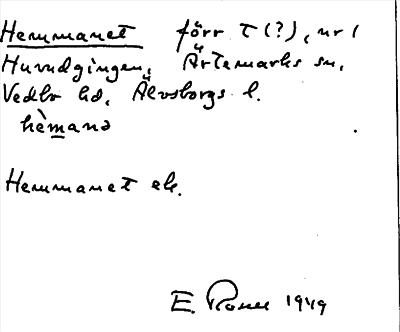 Hemmanet förr t (?), nr 1
Huvudgingen, Ärtemarks sn,
Vedbo hd, Älvsborgs l.
hèmanə
Hemmanet ek.
E. 1949